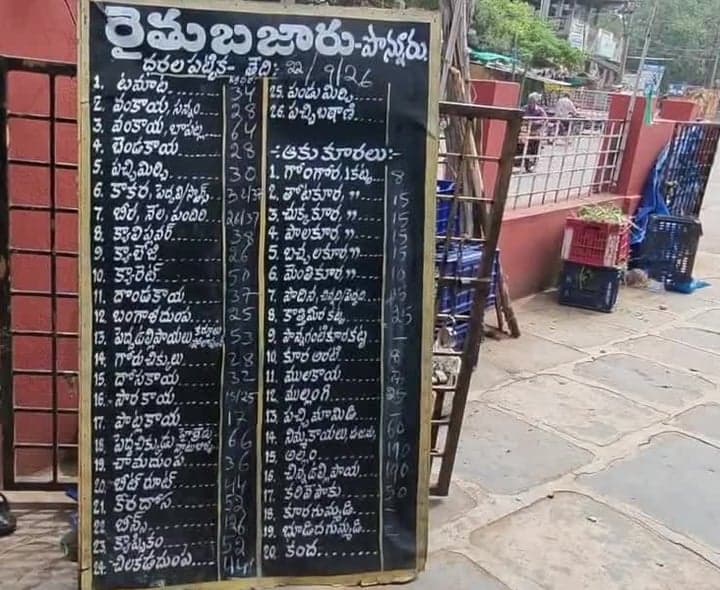 రైతు బజార్-పొన్నూరు.
ధరల పట్టిక- తేది: 22/9/26
1. టమాట 34
2. వంకాయ, సన్నం 28
3. వంకాయ, 64
4. బెండకాయ 28
5. పచ్చిమిర్చి 30
6. కాకర,
7. బీర, నేల, పందిరి 26/37
8. క్యాలీఫ్లవర్ 38
9. క్యాబేజి 26
10. క్యారెట్ 50
11. దొండకాయ 37
12. బంగాళదుంప 25
13. పెద్దఉల్లిపాయలు 53
14. గోరుచిక్కులు 28
15. దోసకాయ 32
16. సొరకాయ 15/25
17. పొట్లకాయ 17
18. పెద్దచిక్కుడు 66
19. చామదుంప 36
20. బీట్ రూట్ 44
21. కీరదోస 52
22. బీన్స్
23. క్యాప్సికం 52
24. చిలకడదుంప 44
25. పండు మిర్చి
26. పచ్చిబఠాణి
-:ఆకు కూరలు:-
1. గోంగూర, 1కట్ట 8
2. తోటకూర, " 15
3. చుక్కకూర, " 15
4. పాలకూర " 15
5. బచ్చలకూర, " 15
6. మెంతికూర, " 10
7. పొదిన,
8. కొత్తిమీర కట్ట 25
9. పొన్నగంటికూర కట్ట -
10. కూర అరటి 8
11. ములకాయ
12. ముల్లంగి 25
13. పచ్చిమామిడి -
14. నిమ్మకాయలు, 60
15. అల్లం 190
16. చిన్నఉల్లిపాయ 190
17. కరివేపాకు 50
18. కూరగుమ్మడి -
19. బూడిదగుమ్మడి -
20. కంద